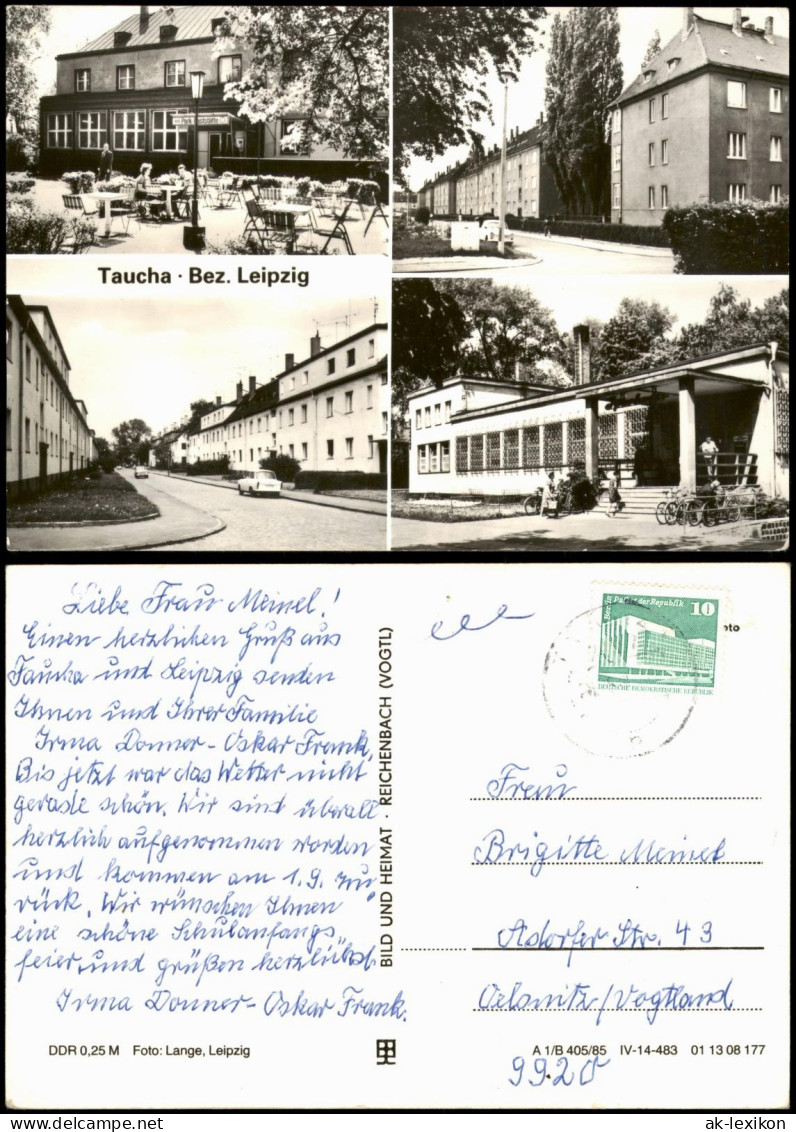 Park-Gaststätte
Taucha · Bez. Leipzig
Liebe Frau Meinel!
Einen herzlichen Gruß aus
Taucha und Leipzig senden
Ihnen und Ihrer Familie
Irma Donner - Oskar Frank.
Bis jetzt war das Wetter nicht
gerade schön. Wir sind überall
herzlich aufgenommen worden
und kommen am 1.9. zu-
rück. Wir wünschen Ihnen
eine schöne Schulanfangs-
feier und grüßen herzlichst
Irma Donner - Oskar Frank.
DDR 0,25 M Foto: Lange, Leipzig
BILD UND HEIMAT · REICHENBACH (VOGTL)
Berlin Palast der Republik 10
DEUTSCHE DEMOKRATISCHE REPUBLIK
oto
Frau
Brigitte Meinel
Adorfer Str. 43
Oelsnitz/Vogtland
9920
A 1/B 405/85 IV-14-483 01 13 08 177
ak-lexikon.com